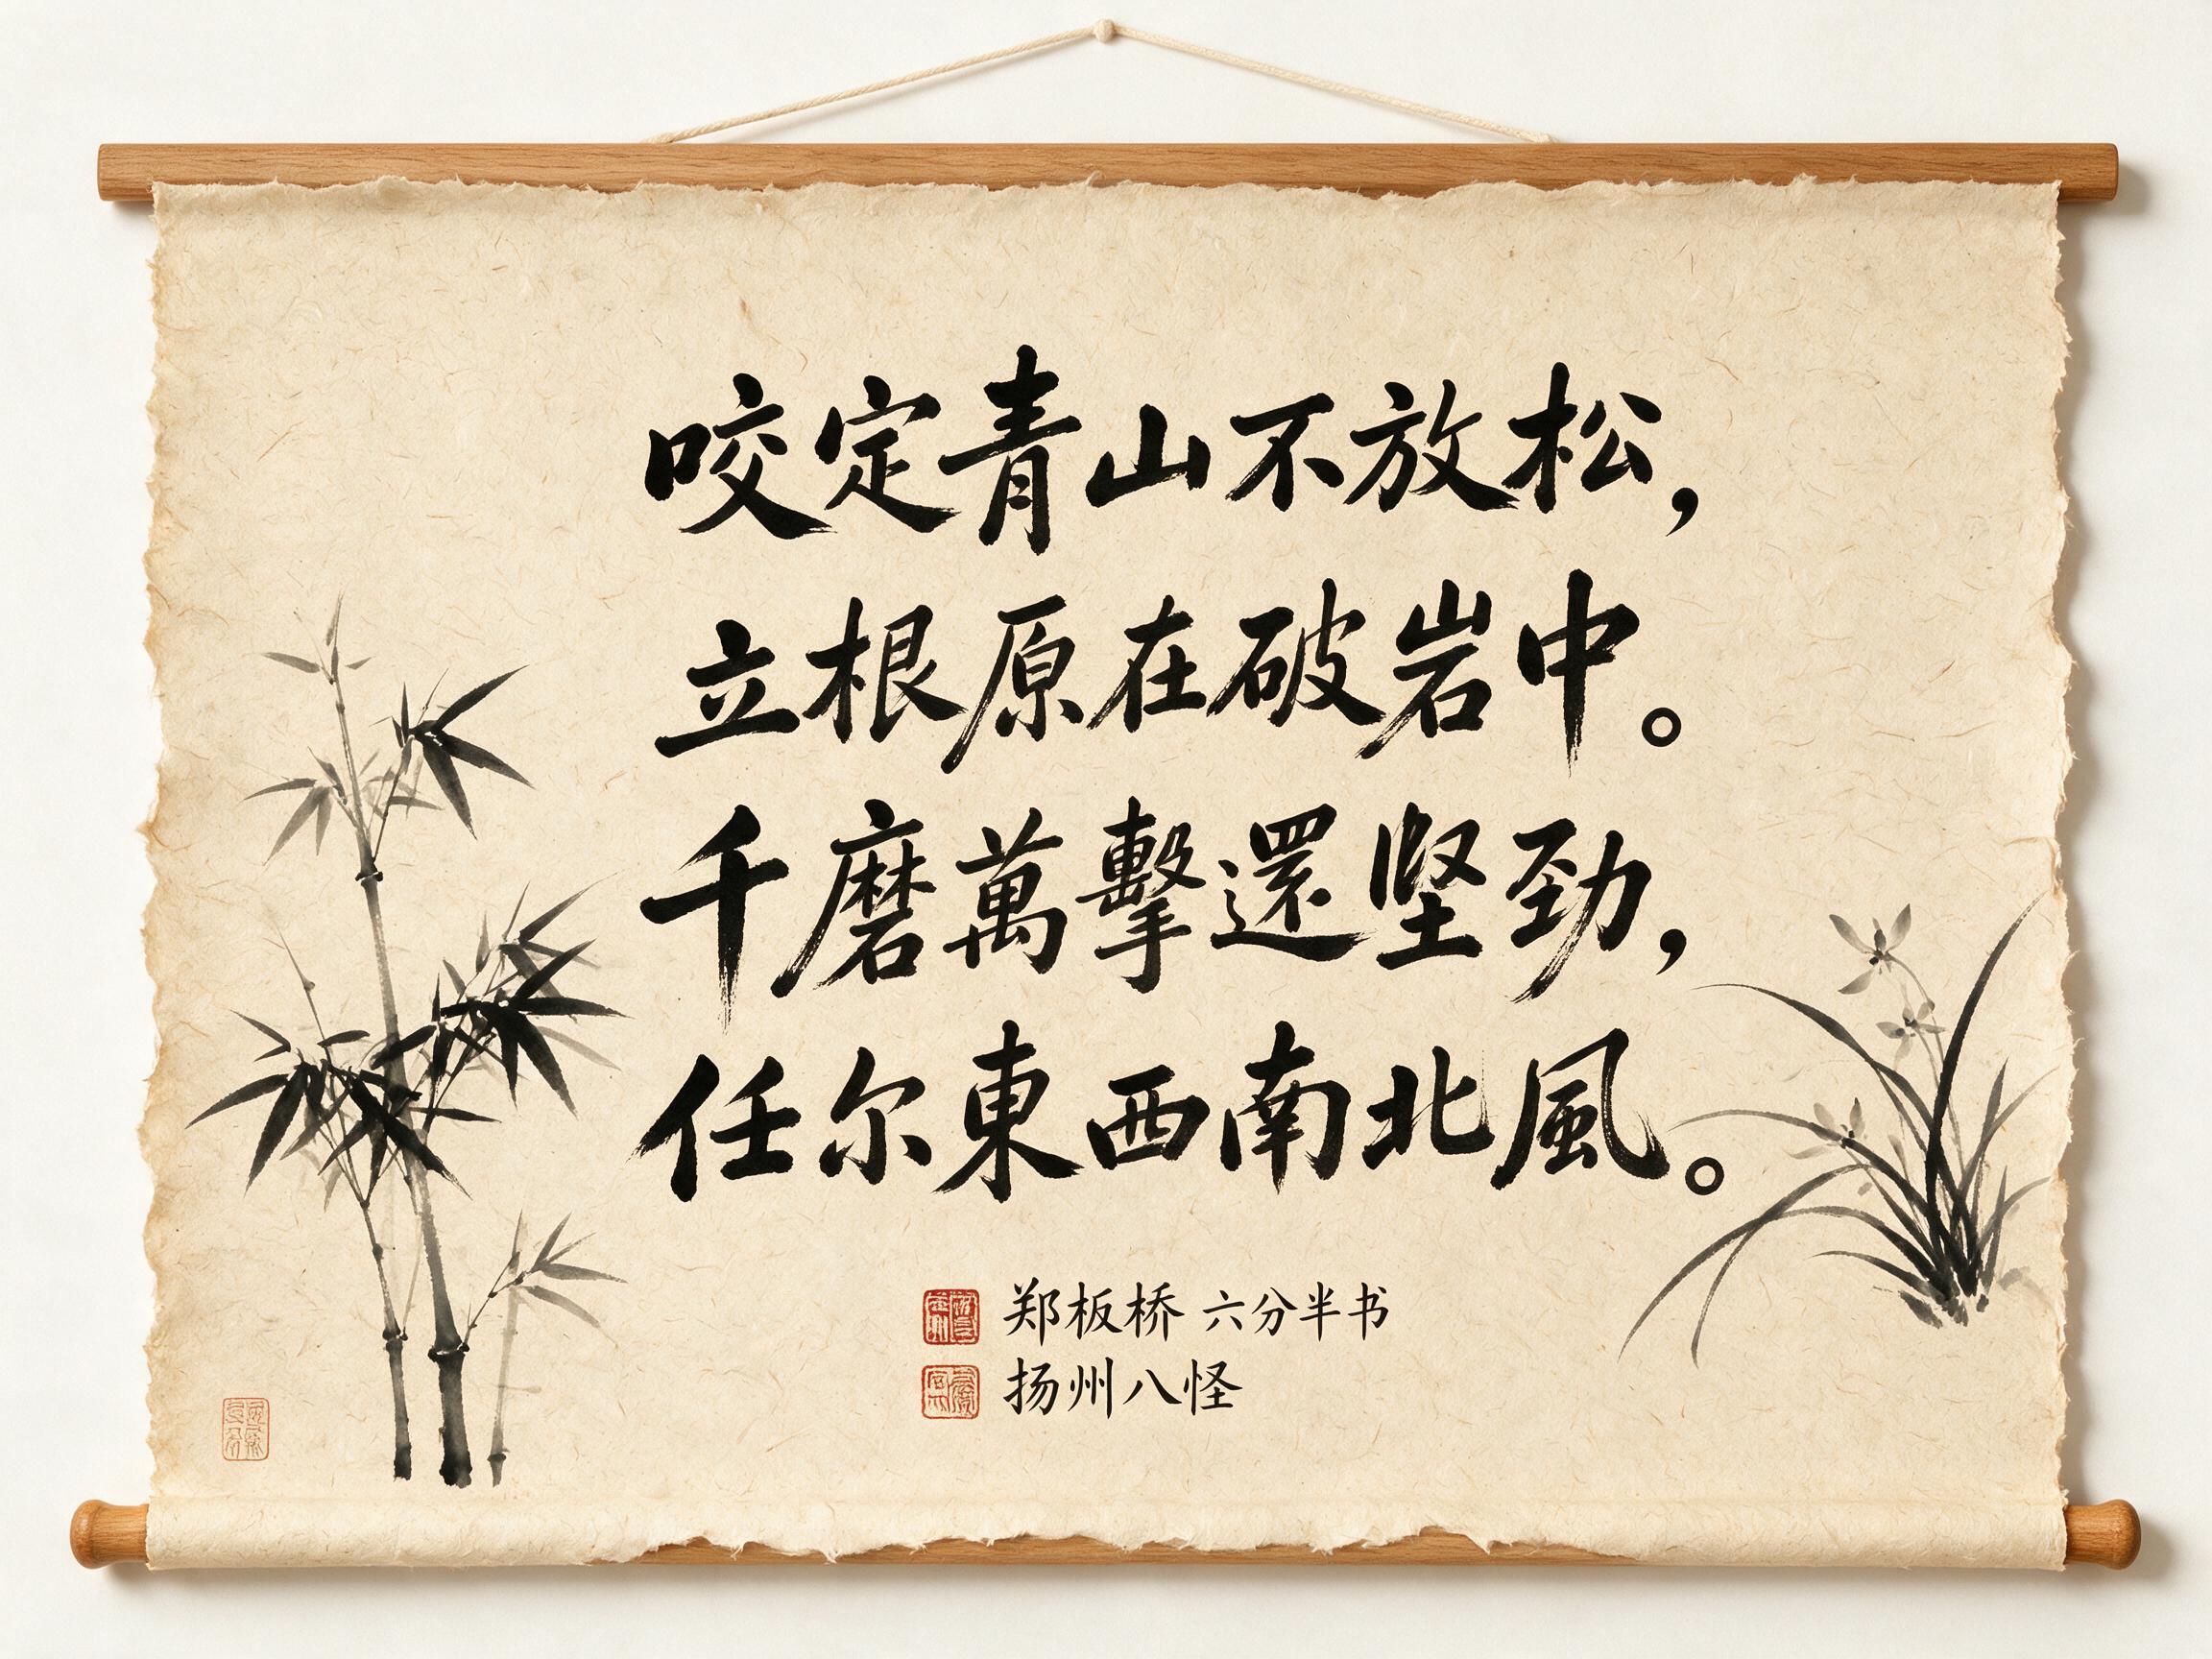 咬定青山不放松，
立根原在破岩中。
千磨萬擊還坚劲，
任尔東西南北風。
郑板桥 六分半书
扬州八怪